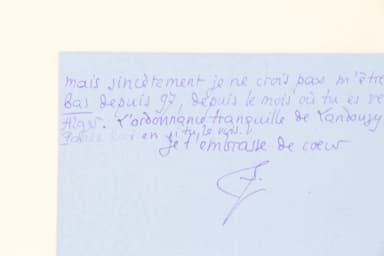 mais sincèrement je ne crois pas m'être
bas depuis 97, depuis le mois où tu es ve
L'ordonnance tranquille de
en si tu le vois!
Je t'embrasse de cœur
J.